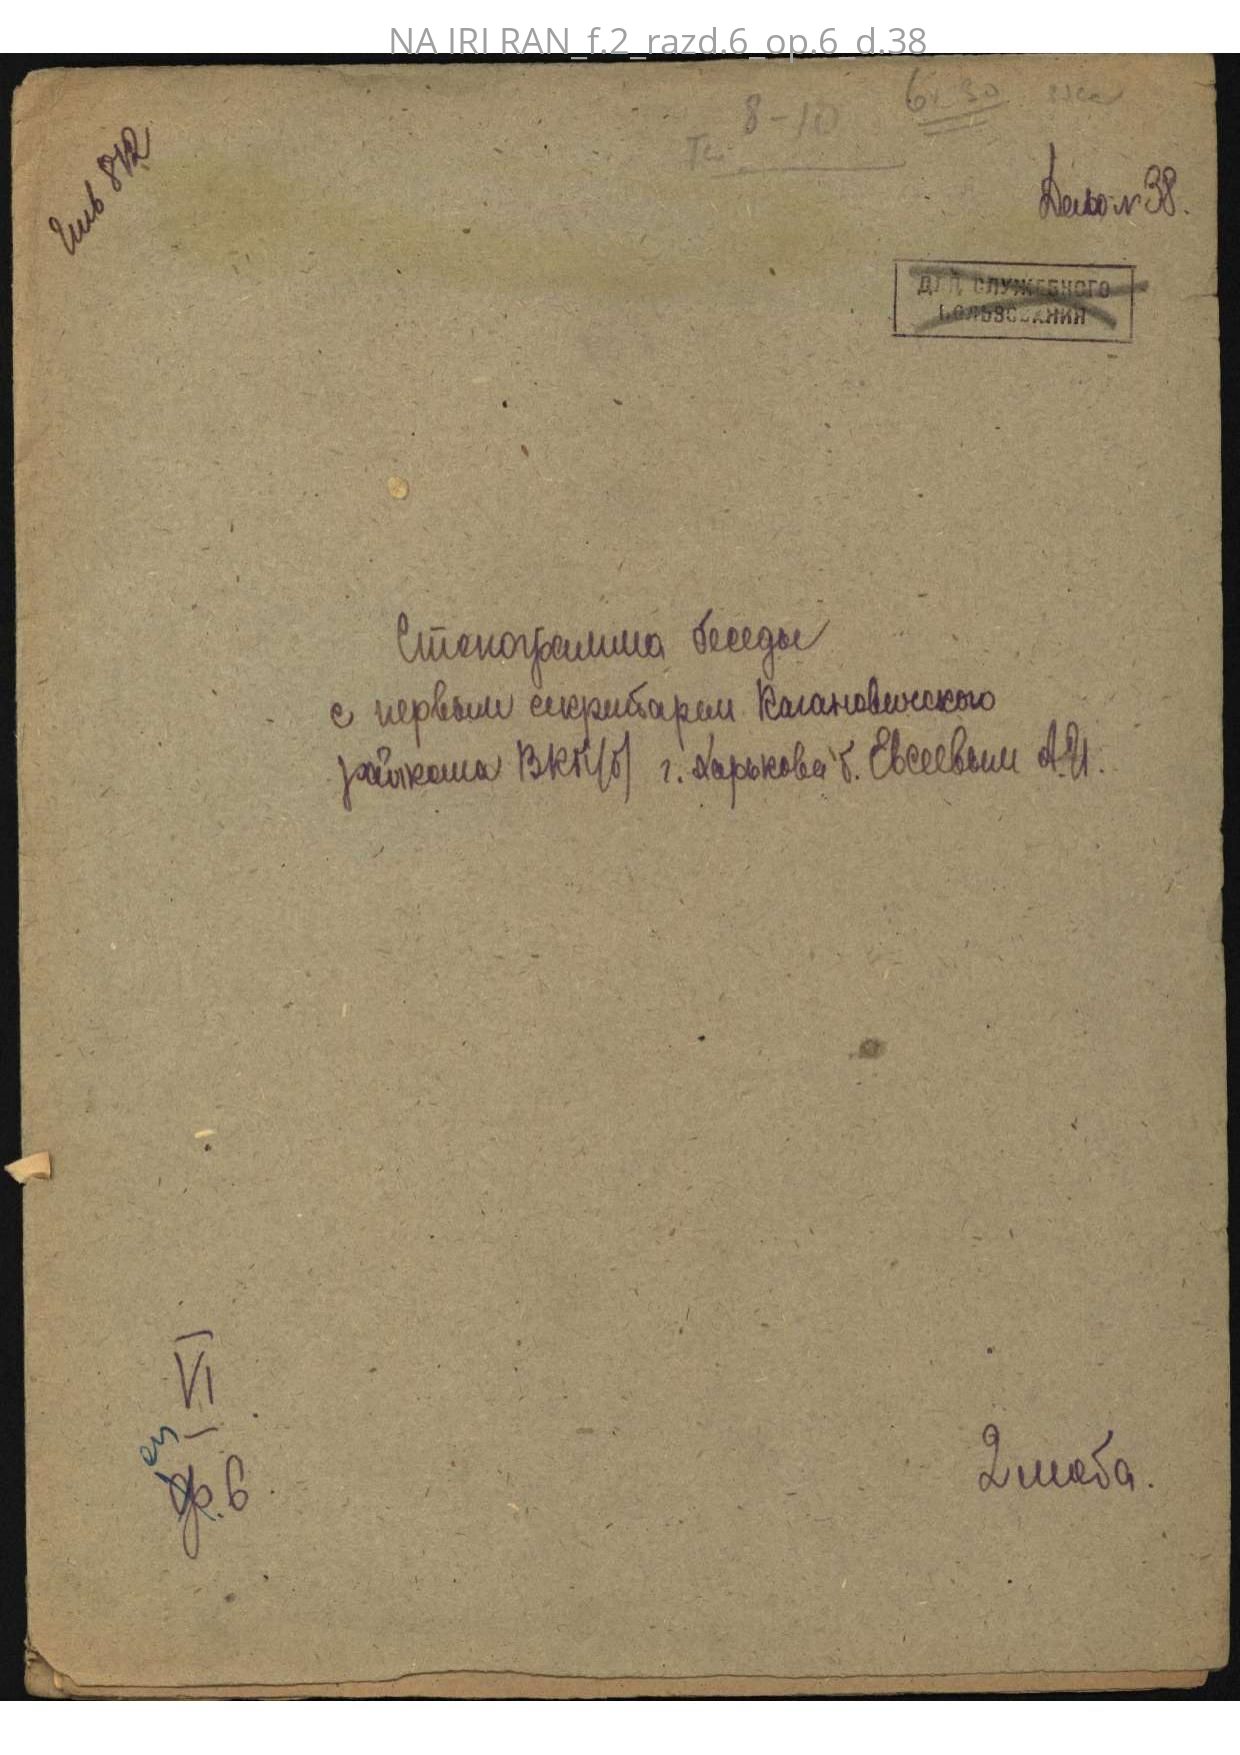 NA IRI RAN_f.2_razd.6_op.6_d.38
8-10
Инв 872
Дело № 38.
ДЛЯ СЛУЖЕБНОГО
ПОЛЬЗОВАНИЯ
Стенограмма беседы
с первым секретарем Кагановичского
райкома ВКП(б) г. Харькова т. Евсеевым А.И.
VI
оп
ф. 6